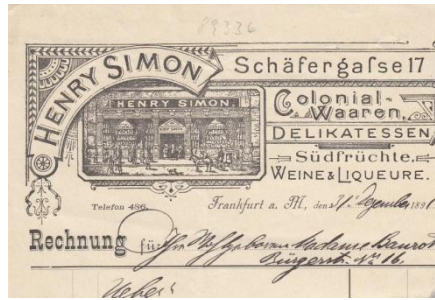 89336
HENRY SIMON
Schäfergasse 17
HENRY SIMON
Colonial-
Waaren,
DELIKATESSEN
Südfrüchte.
WEINE & LIQUEURE.
Telefon 486.
Frankfurt a. M., den 31. Dezember 189
Rechnung für
Madame
Bürgerstr. No 16.